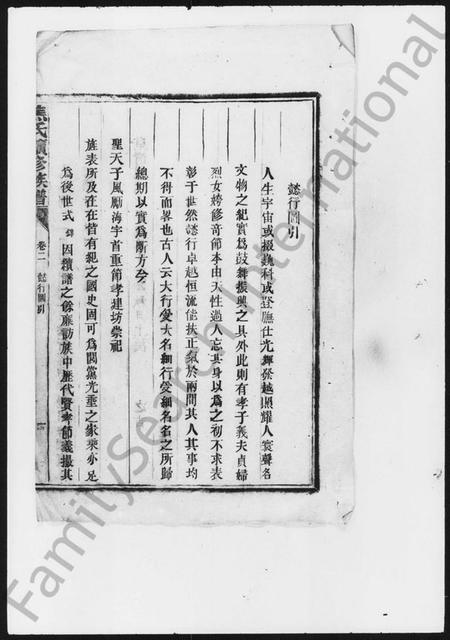 懿行圖引
人生宇宙或掇巍科或登膴仕光輝發越照耀人寰聲名
文物之紀實為鼓舞振興之具外此則有孝子義夫貞婦
烈女姱修奇節本由天性過人忘其身以為之初不求表
彰于世然懿行卓越恒流能扶正氣於兩間其人其事均
不得而畧也古人云大行受大名細行受細名名之所歸
總期以實為斷方今
聖天子風勵海宇首重節孝建坊崇祀
旌表所及在在皆有紀之國史固可為閭黨光垂之家乘亦足
為後世式 因續譜之餘廉訪族中歷代賢孝節義撮其
氏續修族譜
卷二 懿行圖引
FamilySearch International